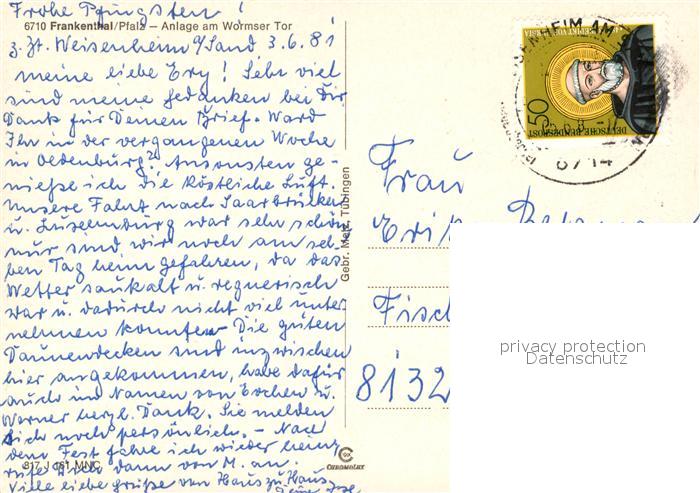 Frohe Pfingsten!
6710 Frankenthal/Pfalz – Anlage am Wormser Tor
z. Zt. Weisenheim a/Sand 3.6.81
meine liebe Ery! Sehr viel
sind meine Gedanken bei Dir
Dank für Deinen Brief. Ward
Ihr in der vergangenen Woche
in Oldenburg? Ansonsten ge-
nieße ich die köstliche Luft.
Unsere Fahrt nach Saarbrücken
u. Luxemburg war sehr schön
nur sind wir noch am sel-
ben Tag heim gefahren, da das
Wetter saukalt u. regnerisch
war u. dadurch nicht viel unter-
nehmen konnten. Die guten
Daunendecken sind inzwischen
hier angekommen, habe dafür
auch im Namen von Evchen u.
Werner herzl. Dank. Sie melden
sich noch persönlich. – Nach
dem Fest fahre ich wieder heim,
rufe Dich dann von M. an.
Viele liebe Grüße von Haus zu Haus
Deine
817 J 161 MNC
Gebr. Metz, Tübingen
CHROMOLUX
50
DEUTSCHE BUNDESPOST
6714
Frau
Fisch
8132
privacy protection
Datenschutz